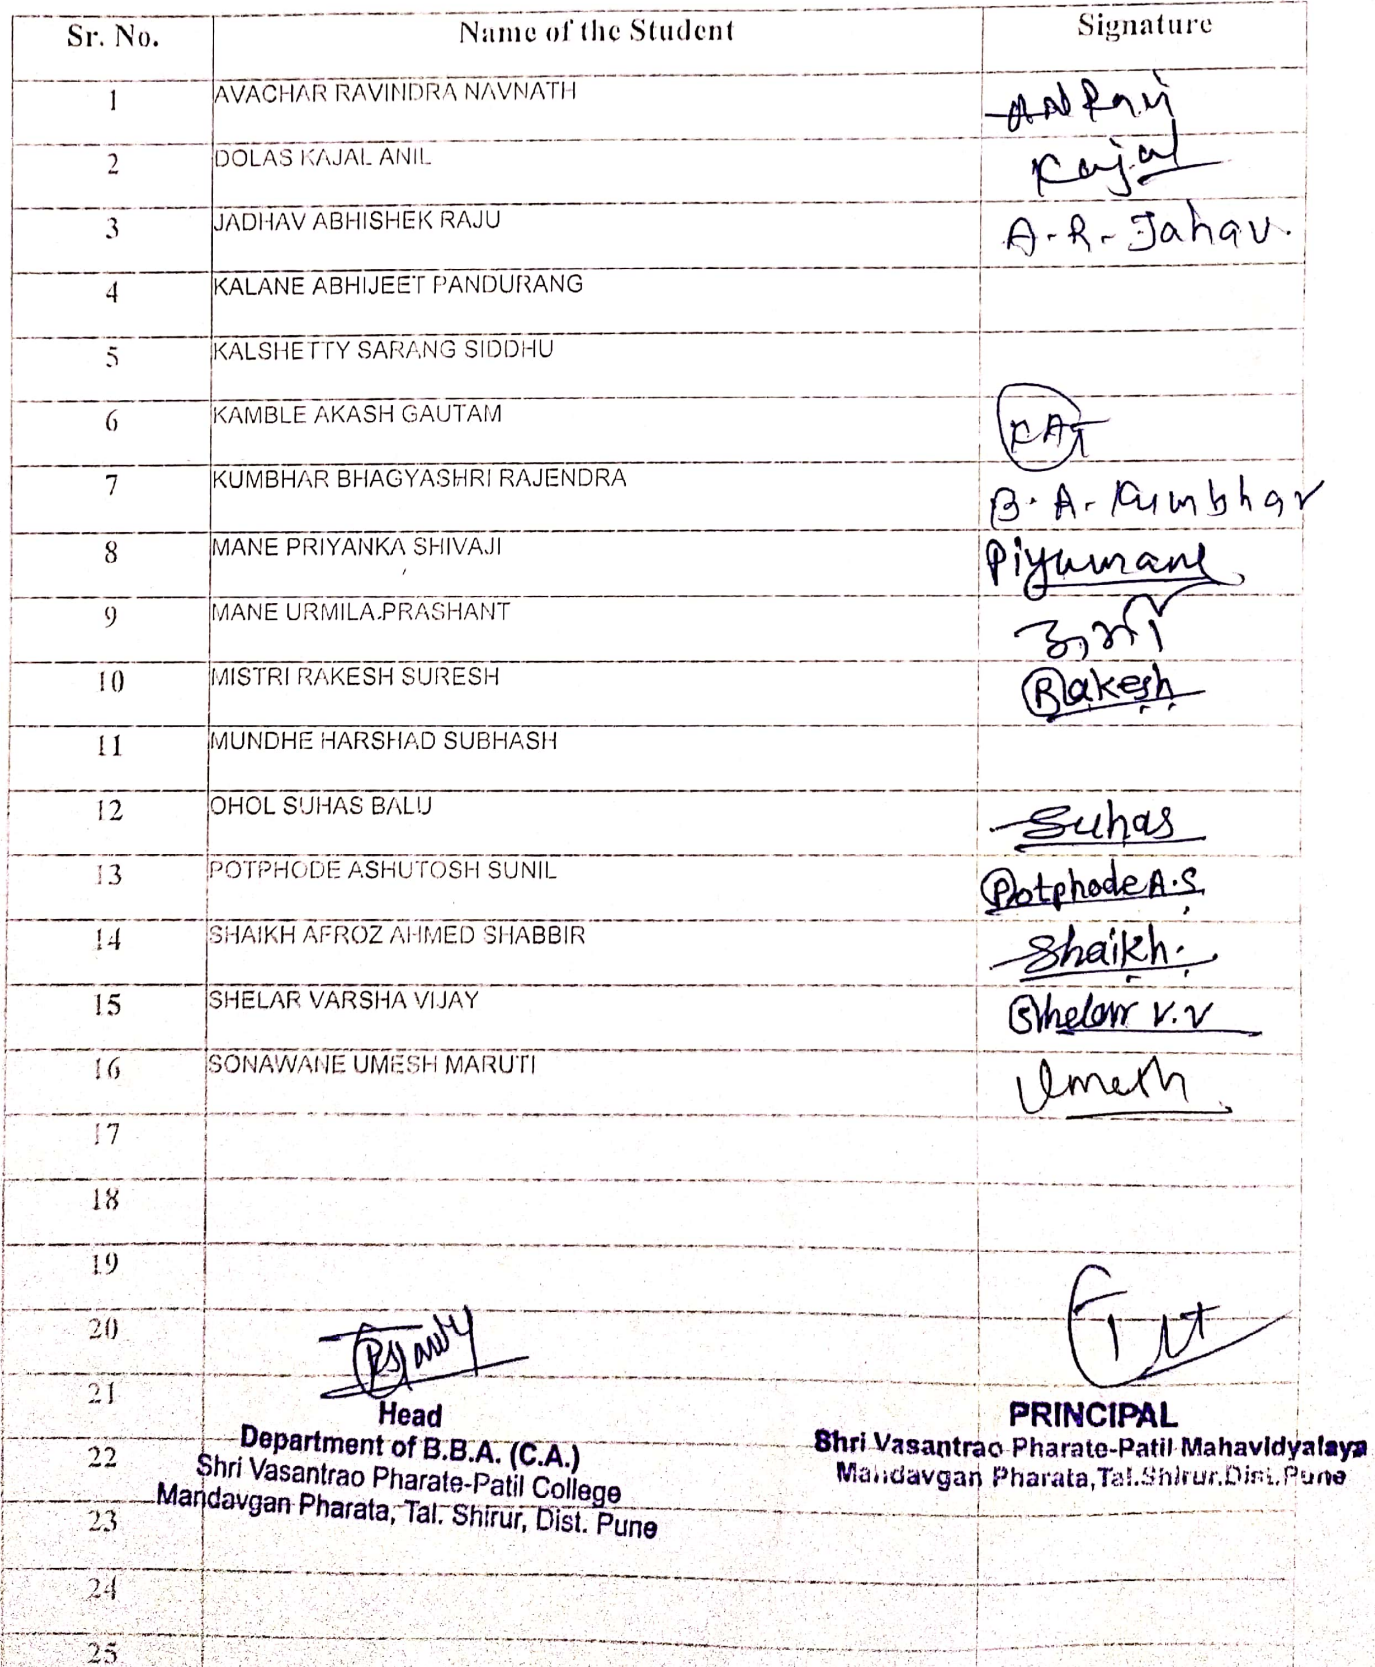 Sr. No. Name of the Student Signature
1 AVACHAR RAVINDRA NAVNATH
2 DOLAS KAJAL ANIL Kajal
3 JADHAV ABHISHEK RAJU A-R-Jahav.
4 KALANE ABHIJEET PANDURANG
5 KALSHETTY SARANG SIDDHU
6 KAMBLE AKASH GAUTAM
7 KUMBHAR BHAGYASHRI RAJENDRA B. A. Kumbhar
8 MANE PRIYANKA SHIVAJI Piyumane
9 MANE URMILA.PRASHANT
10 MISTRI RAKESH SURESH Rakesh
11 MUNDHE HARSHAD SUBHASH
12 OHOL SUHAS BALU Suhas
13 POTPHODE ASHUTOSH SUNIL Potphode A.S.
14 SHAIKH AFROZ AHMED SHABBIR Shaikh.
15 SHELAR VARSHA VIJAY Shelar V.V
16 SONAWANE UMESH MARUTI Umesh
17
18
19
20
21
Head
Department of B.B.A. (C.A.)
Shri Vasantrao Pharate-Patil College
Mandavgan Pharata, Tal. Shirur, Dist. Pune
PRINCIPAL
Shri Vasantrao Pharate-Patil Mahavidyalaya
Mandavgan Pharata, Tal.Shirur.Dist.Pune
22
23
24
25